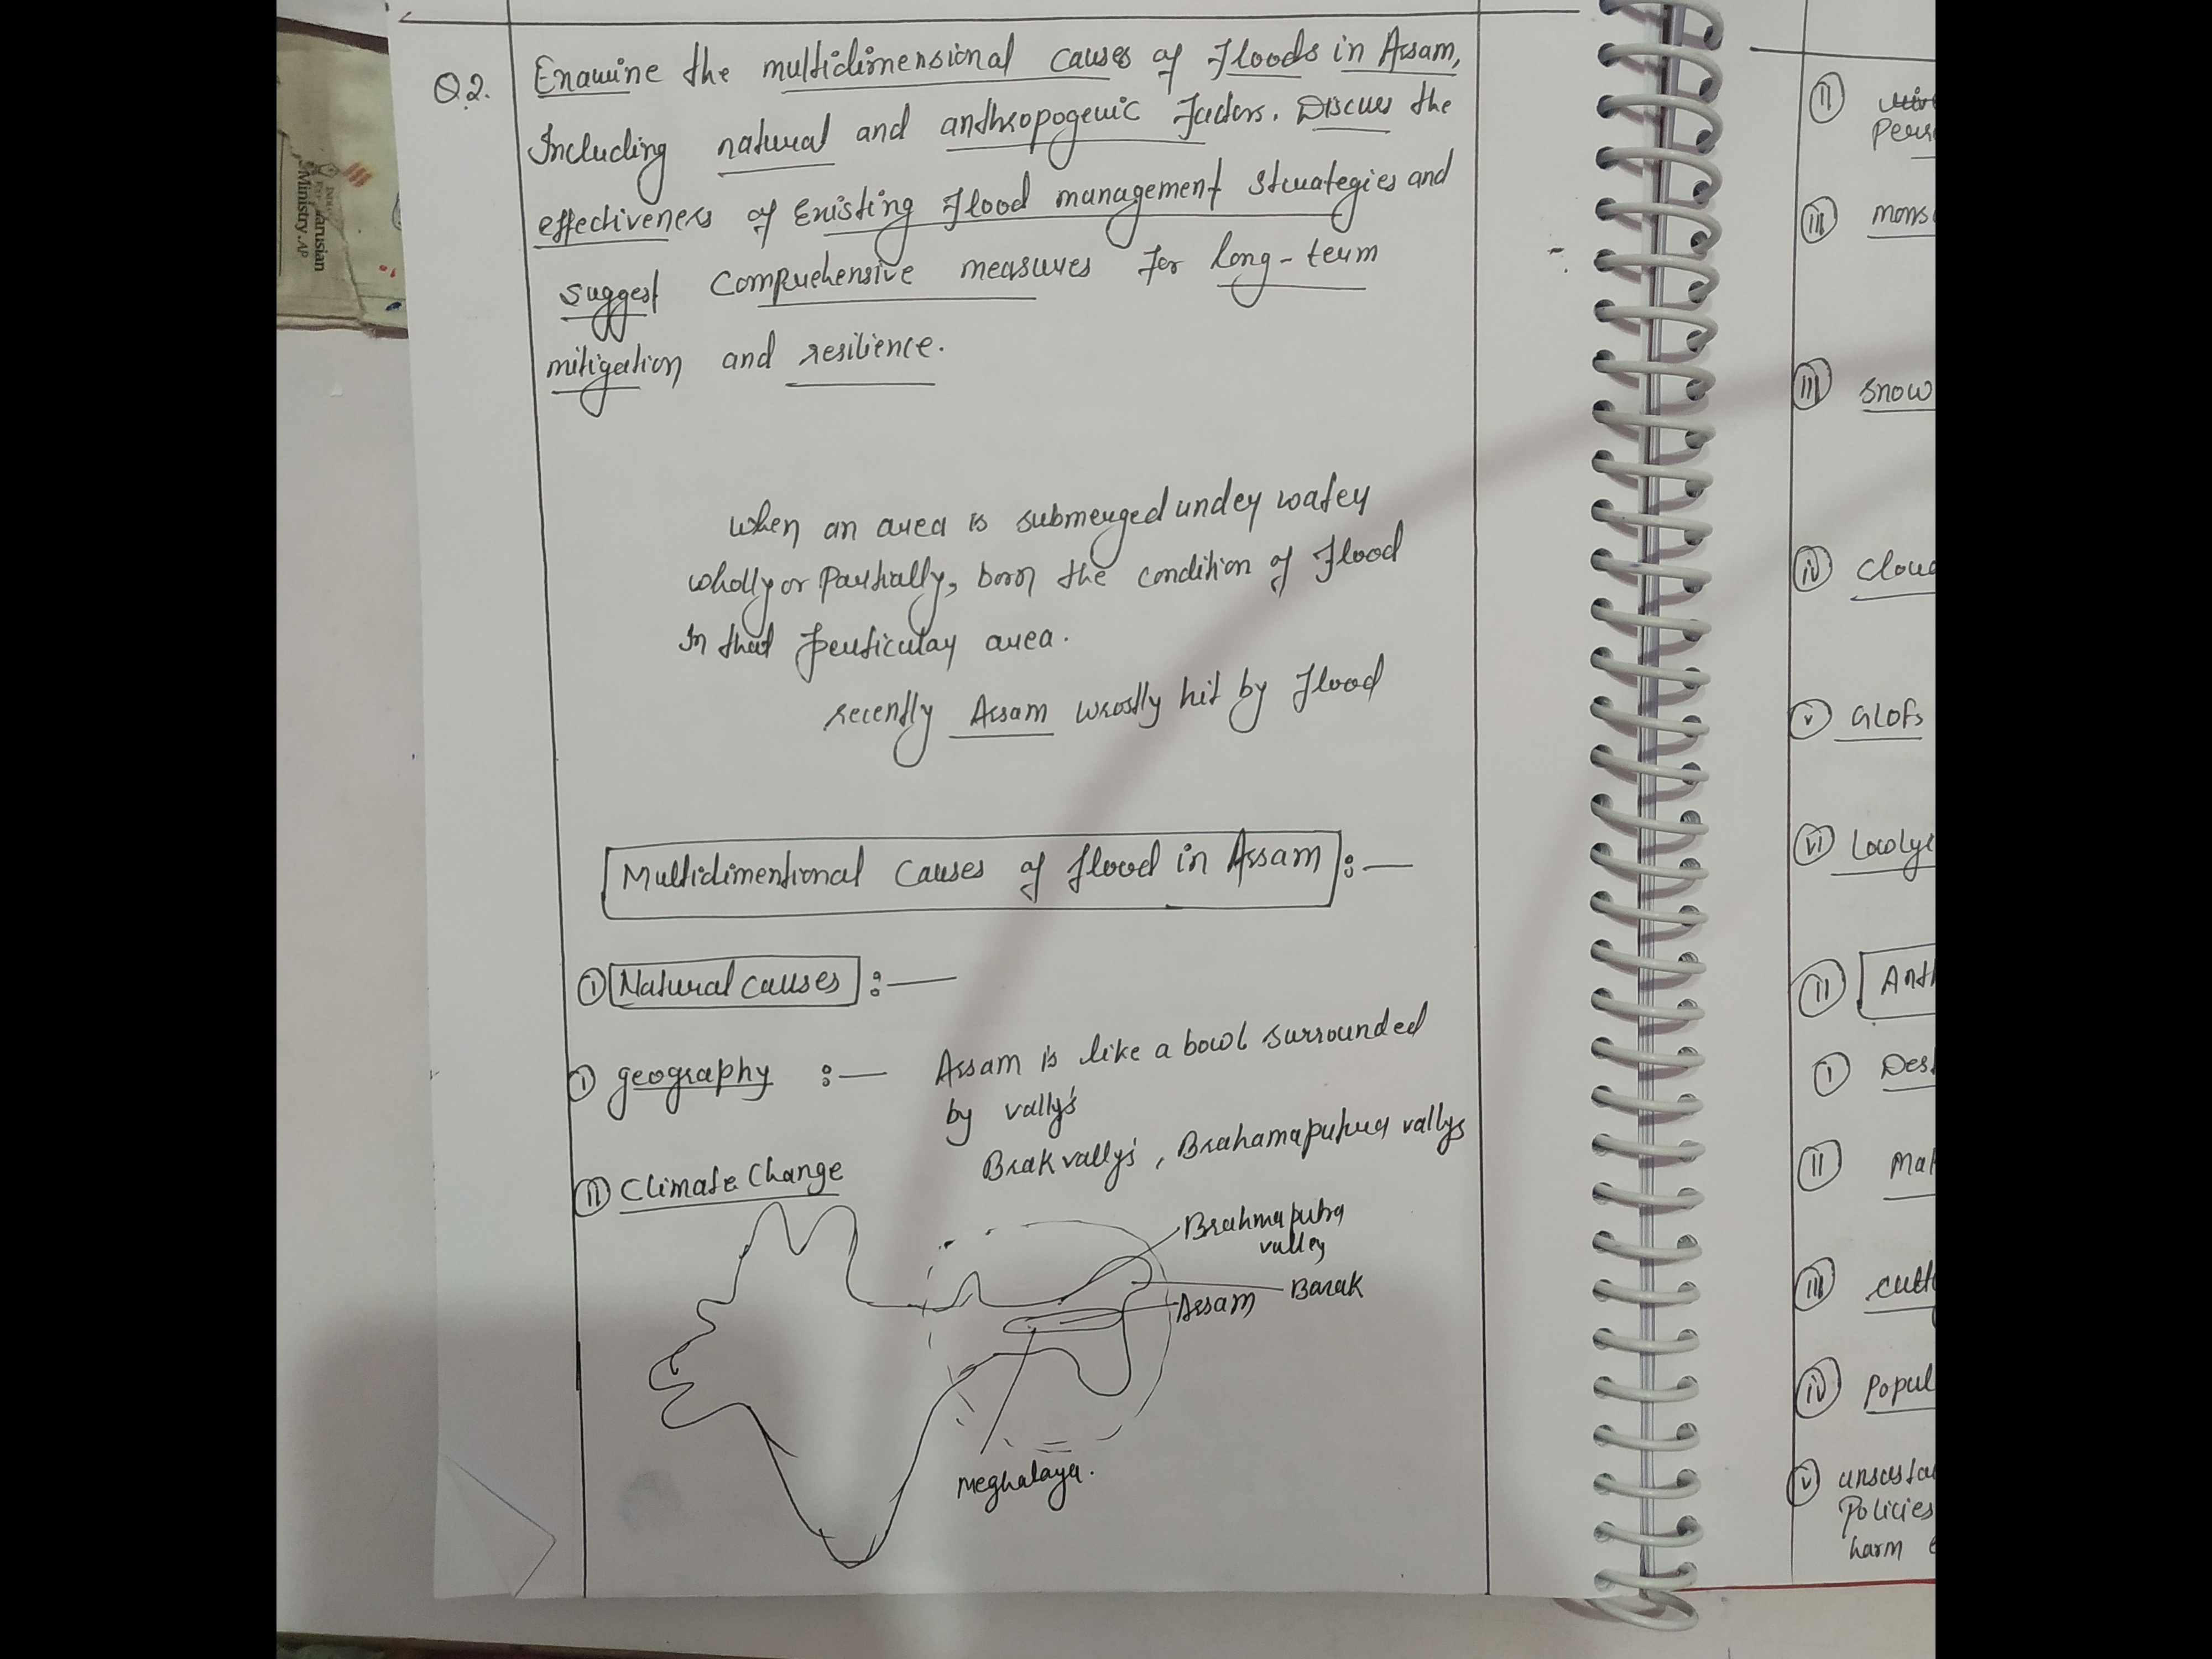 Q.2. Examine the multidimensional causes of Floods in Assam,
Including natural and anthropogenic Factors. Discuss the
effectiveness of Existing Flood management strategies and
suggest comprehensive measures for long-term
mitigation and resilience.
when an area is submerged under water
wholly or Partially, born the condition of Flood
In that perticular area.
recently Assam wrostly hit by Flood
Multidimentional Causes of flood in Assam :—
I Natural causes :—
I geography :— Assam is like a bowl surrounded
by vally's
Brak vally's, Brahamaputra vallys
II Climate Change
Brahmaputra
valley
Barak
Assam
Meghalaya.
Ministry.
II
III mons
III Snow
iv Clou
v GLOFs
vi Lowly
II Anth
I Des
II Mak
III cult
iv Popul
v unsusta
Policies
harm